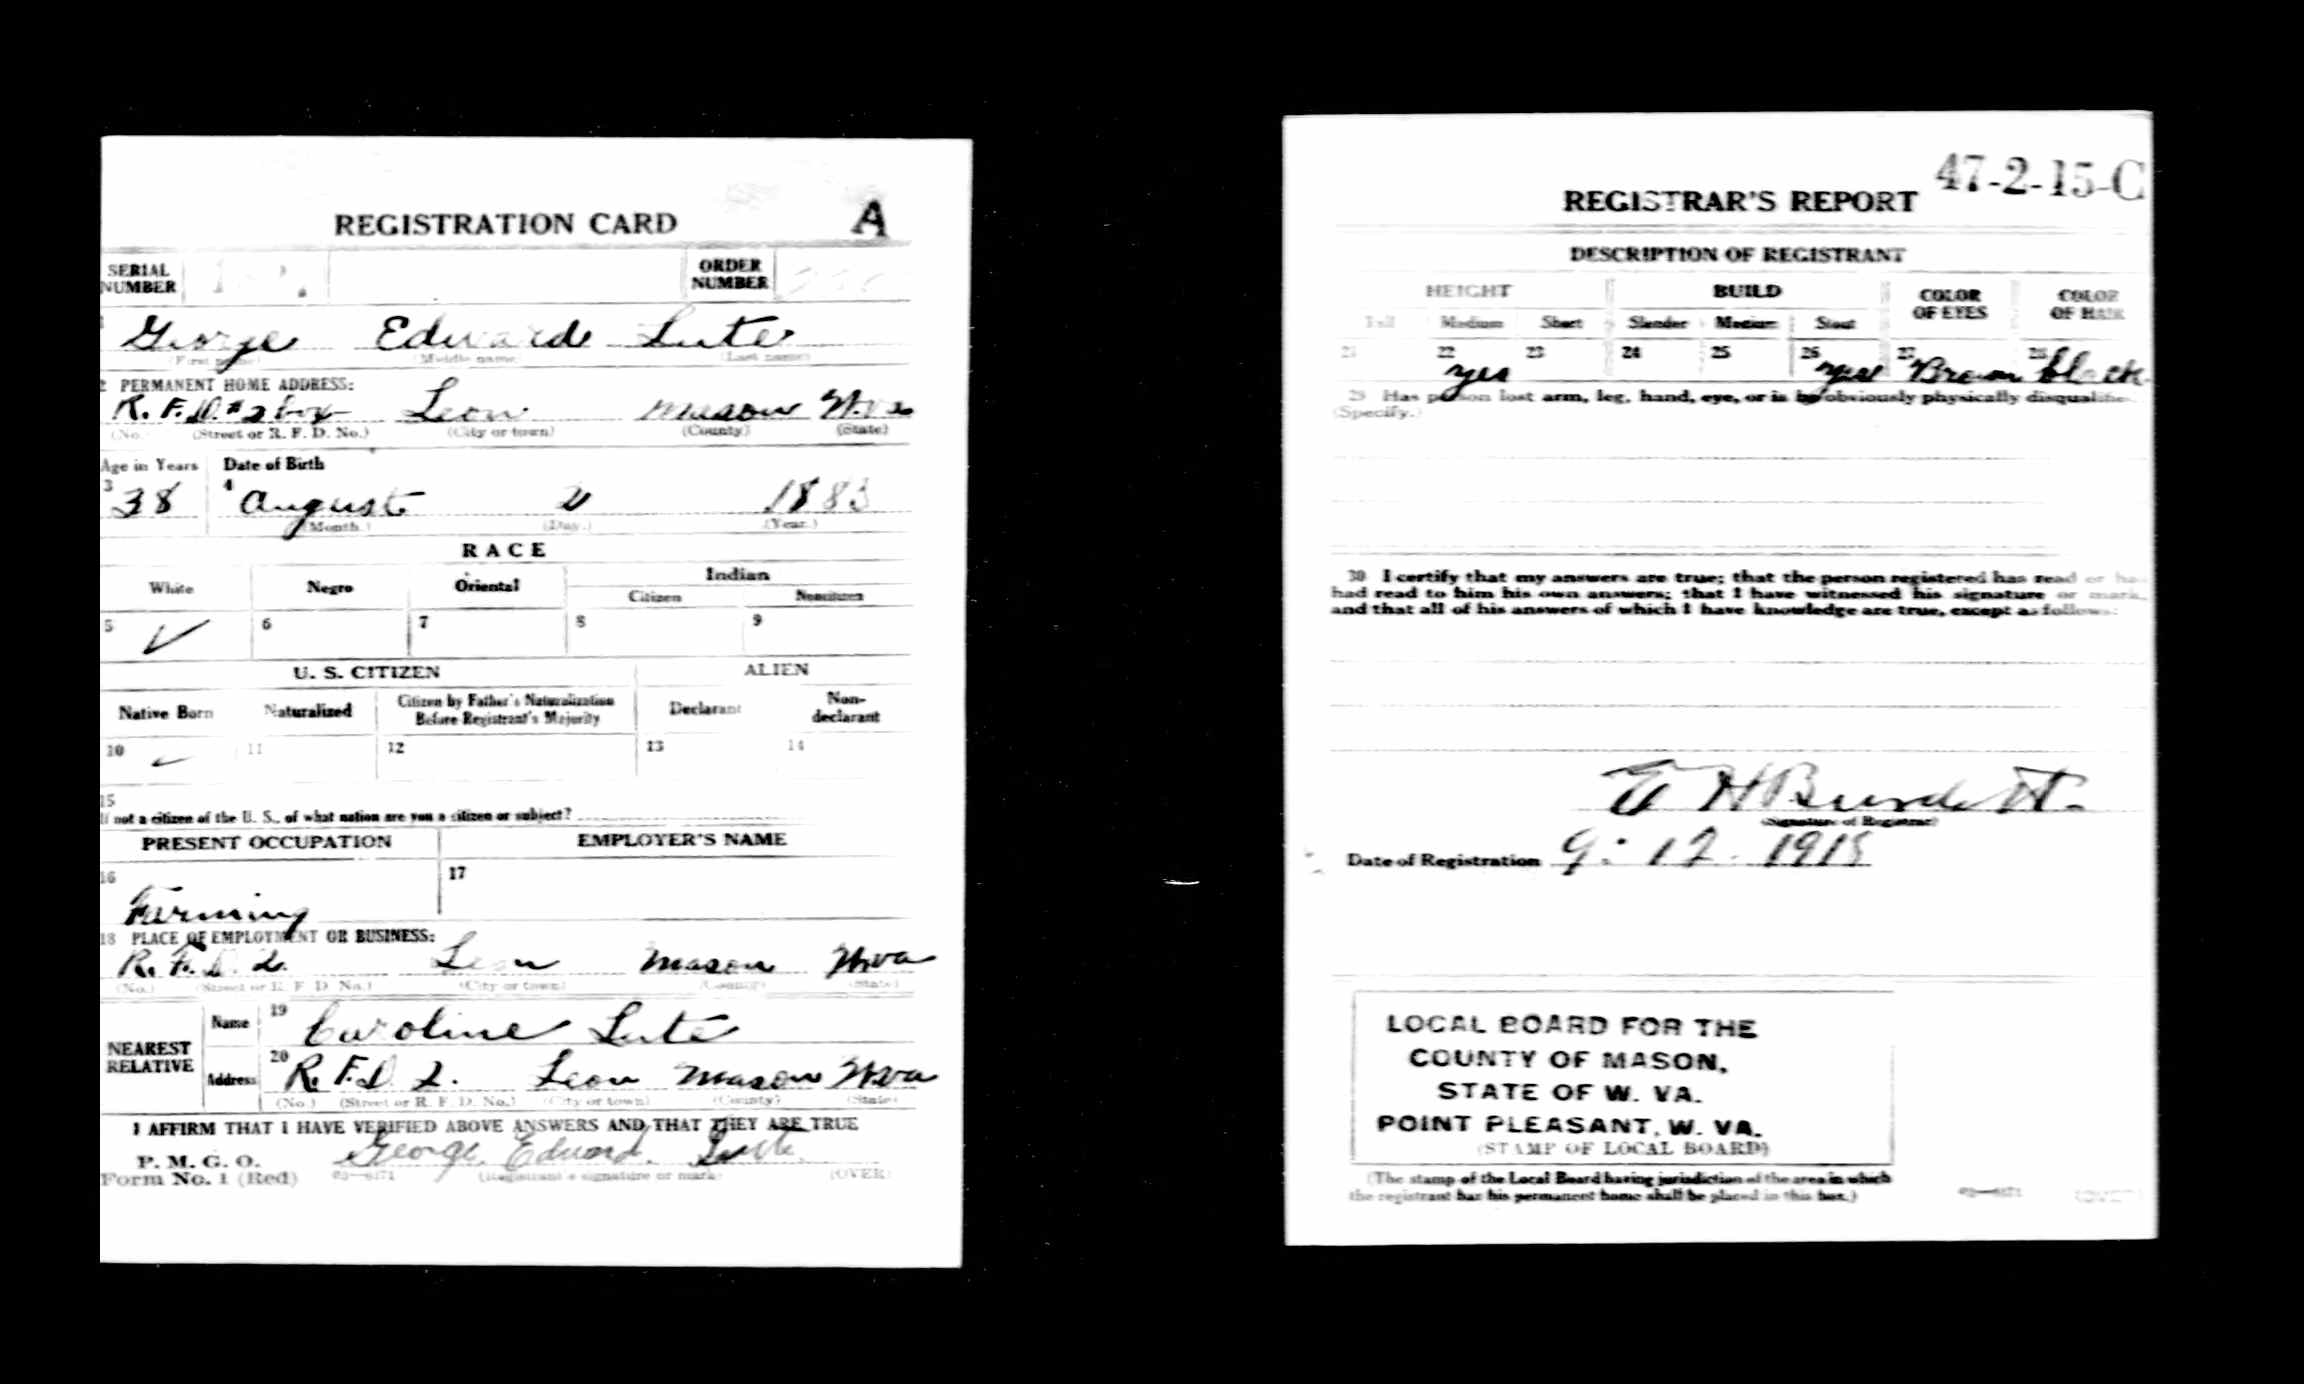 REGISTRATION CARD A
SERIAL NUMBER
ORDER NUMBER
George Edward Lute
(First name) (Middle name) (Last name)
2 PERMANENT HOME ADDRESS:
R. F. D. #2 box Leon Mason W.va
(No.) (Street or R. F. D. No.) (City or town) (County) (State)
Age in Years Date of Birth
3 38 4 August 1883
(Month.) (Day.) (Year.)
RACE
White Negro Oriental Indian
Citizen Noncitizen
5 ✓ 6 7 8 9
U. S. CITIZEN ALIEN
Native Born Naturalized Citizen by Father's Naturalization Before Registrant's Majority Declarant Non-declarant
10 ✓ 11 12 13 14
15
If not a citizen of the U. S., of what nation are you a citizen or subject?
PRESENT OCCUPATION EMPLOYER'S NAME
16 Farming 17
18 PLACE OF EMPLOYMENT OR BUSINESS:
R. F. D. 2. Leon Mason W.va
(No.) (Street or R. F. D. No.) (City or town) (County) (State)
NEAREST RELATIVE
Name 19 Caroline Lute
Address 20 R. F. D. 2. Leon Mason W.va
(No.) (Street or R. F. D. No.) (City or town) (County) (State)
I AFFIRM THAT I HAVE VERIFIED ABOVE ANSWERS AND THAT THEY ARE TRUE
P. M. G. O.
Form No. 1 (Red) 03—6171 George Edward Lute
(Registrant's signature or mark) (OVER)
47-2-15-C
REGISTRAR'S REPORT
DESCRIPTION OF REGISTRANT
HEIGHT BUILD COLOR OF EYES COLOR OF HAIR
Tall Medium Short Slender Medium Stout
21 22 yes 23 24 25 26 yes 27 Brown 28 black
29 Has person lost arm, leg, hand, eye, or is he obviously physically disqualified
(Specify.)
30 I certify that my answers are true; that the person registered has read or has
had read to him his own answers; that I have witnessed his signature or mark,
and that all of his answers of which I have knowledge are true, except as follows:
E H Burdett.
(Signature of Registrar)
Date of Registration 9 - 12 - 1918
LOCAL BOARD FOR THE
COUNTY OF MASON,
STATE OF W. VA.
POINT PLEASANT, W. VA.
(STAMP OF LOCAL BOARD)
(The stamp of the Local Board having jurisdiction of the area in which
the registrant has his permanent home shall be placed in this box.)
03—6171 (OVER)